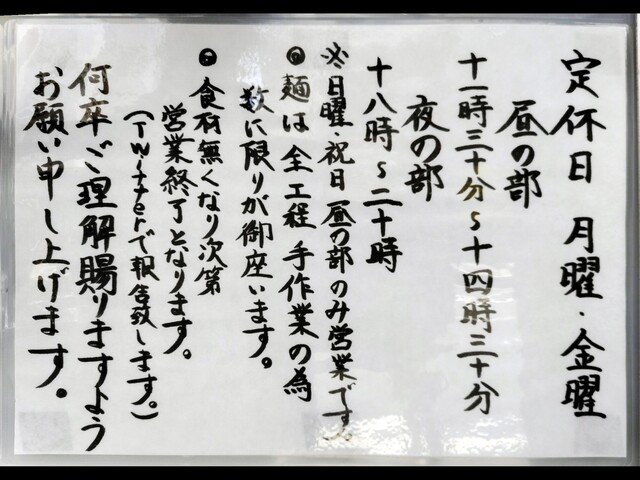 定休日 月曜・金曜
昼の部
十一時三十分～十四時三十分
夜の部
十八時～二十時
※日曜・祝日 昼の部のみ営業です。
●麺は全工程 手作業の為
数に限りが御座います。
●食材無くなり次第
営業終了となります。
(Twitterで報告致します。)
何卒ご理解賜りますよう
お願い申し上げます。